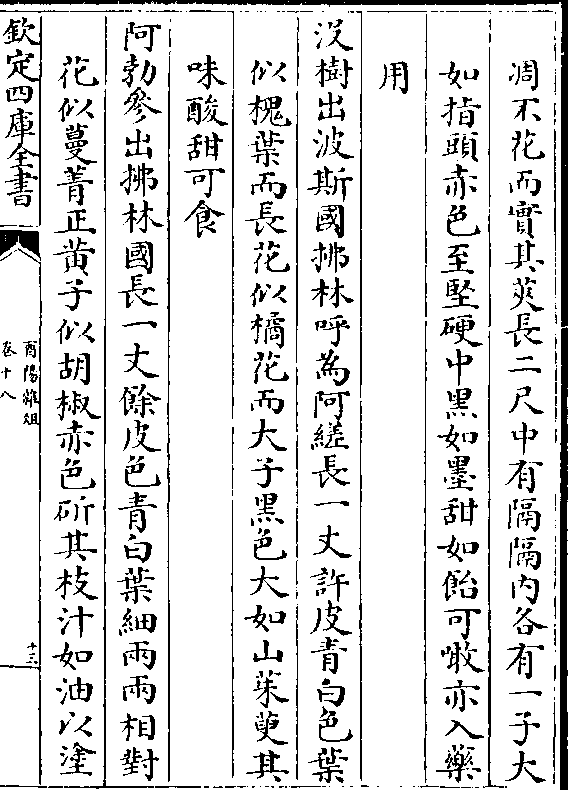 凋不花而實其莢長二尺中有隔隔内各有一子大
如指頭赤色至堅硬中黑如墨甜如飴可噉亦入藥
用
没樹出波斯國拂林呼為阿縒長一丈許皮青白色葉
似槐葉而長花似橘花而大子黑色大如山茱萸其
味酸甜可食
阿勃參出拂林國長一丈餘皮色青白葉細兩兩相對
花似蔓菁正黄子似胡椒赤色斫其枝汁如油以塗
欽定四庫全書
酉陽雜俎
卷十八
十三